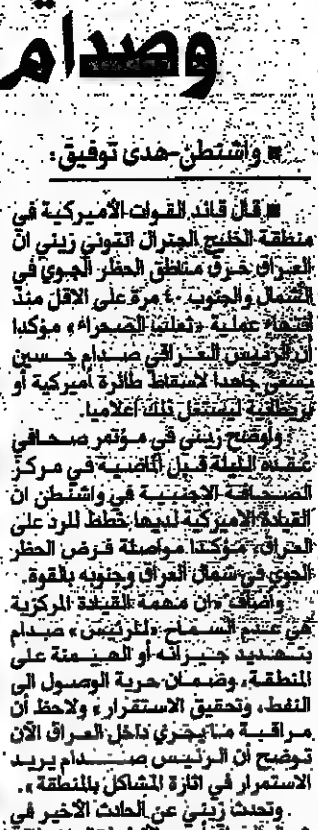 وصدام
■ واشنطن-هدى توفيق:
■ قال قائد القوات الأميركية في
منطقة الخليج الجنرال انتوني زيني ان
العراق خرق مناطق الحظر الجوي في
الشمال والجنوب ٤٠ مرة على الاقل منذ
انتهاء عملية «ثعلب الصحراء» مؤكدا
أن الرئيس العراقي صدام حسين
يسعى جاهدا لاسقاط طائرة اميركية أو
بريطانية ليستغل ذلك اعلاميا.
وأوضح زيني في مؤتمر صحافي
عقده الليلة قبل الماضية في مركز
الصحافة الاجنبية في واشنطن ان
القيادة الاميركية لديها خطط للرد على
العراق، مؤكدا مواصلة فرض الحظر
الجوي في شمال العراق وجنوبه بالقوة.
وأضاف «ان مهمة القيادة المركزية
هي عدم السماح «للرئيس» صدام
بتهديد جيرانه أو الهيمنة على
المنطقة، وضمان حرية الوصول الى
النفط، وتحقيق الاستقرار» ولاحظ أن
مراقبة ما يجري داخل العراق الآن
توضح أن الرئيس صدام يريد
الاستمرار في اثارة المشاكل بالمنطقة».
وتحدث زيني عن الحادث الأخير في